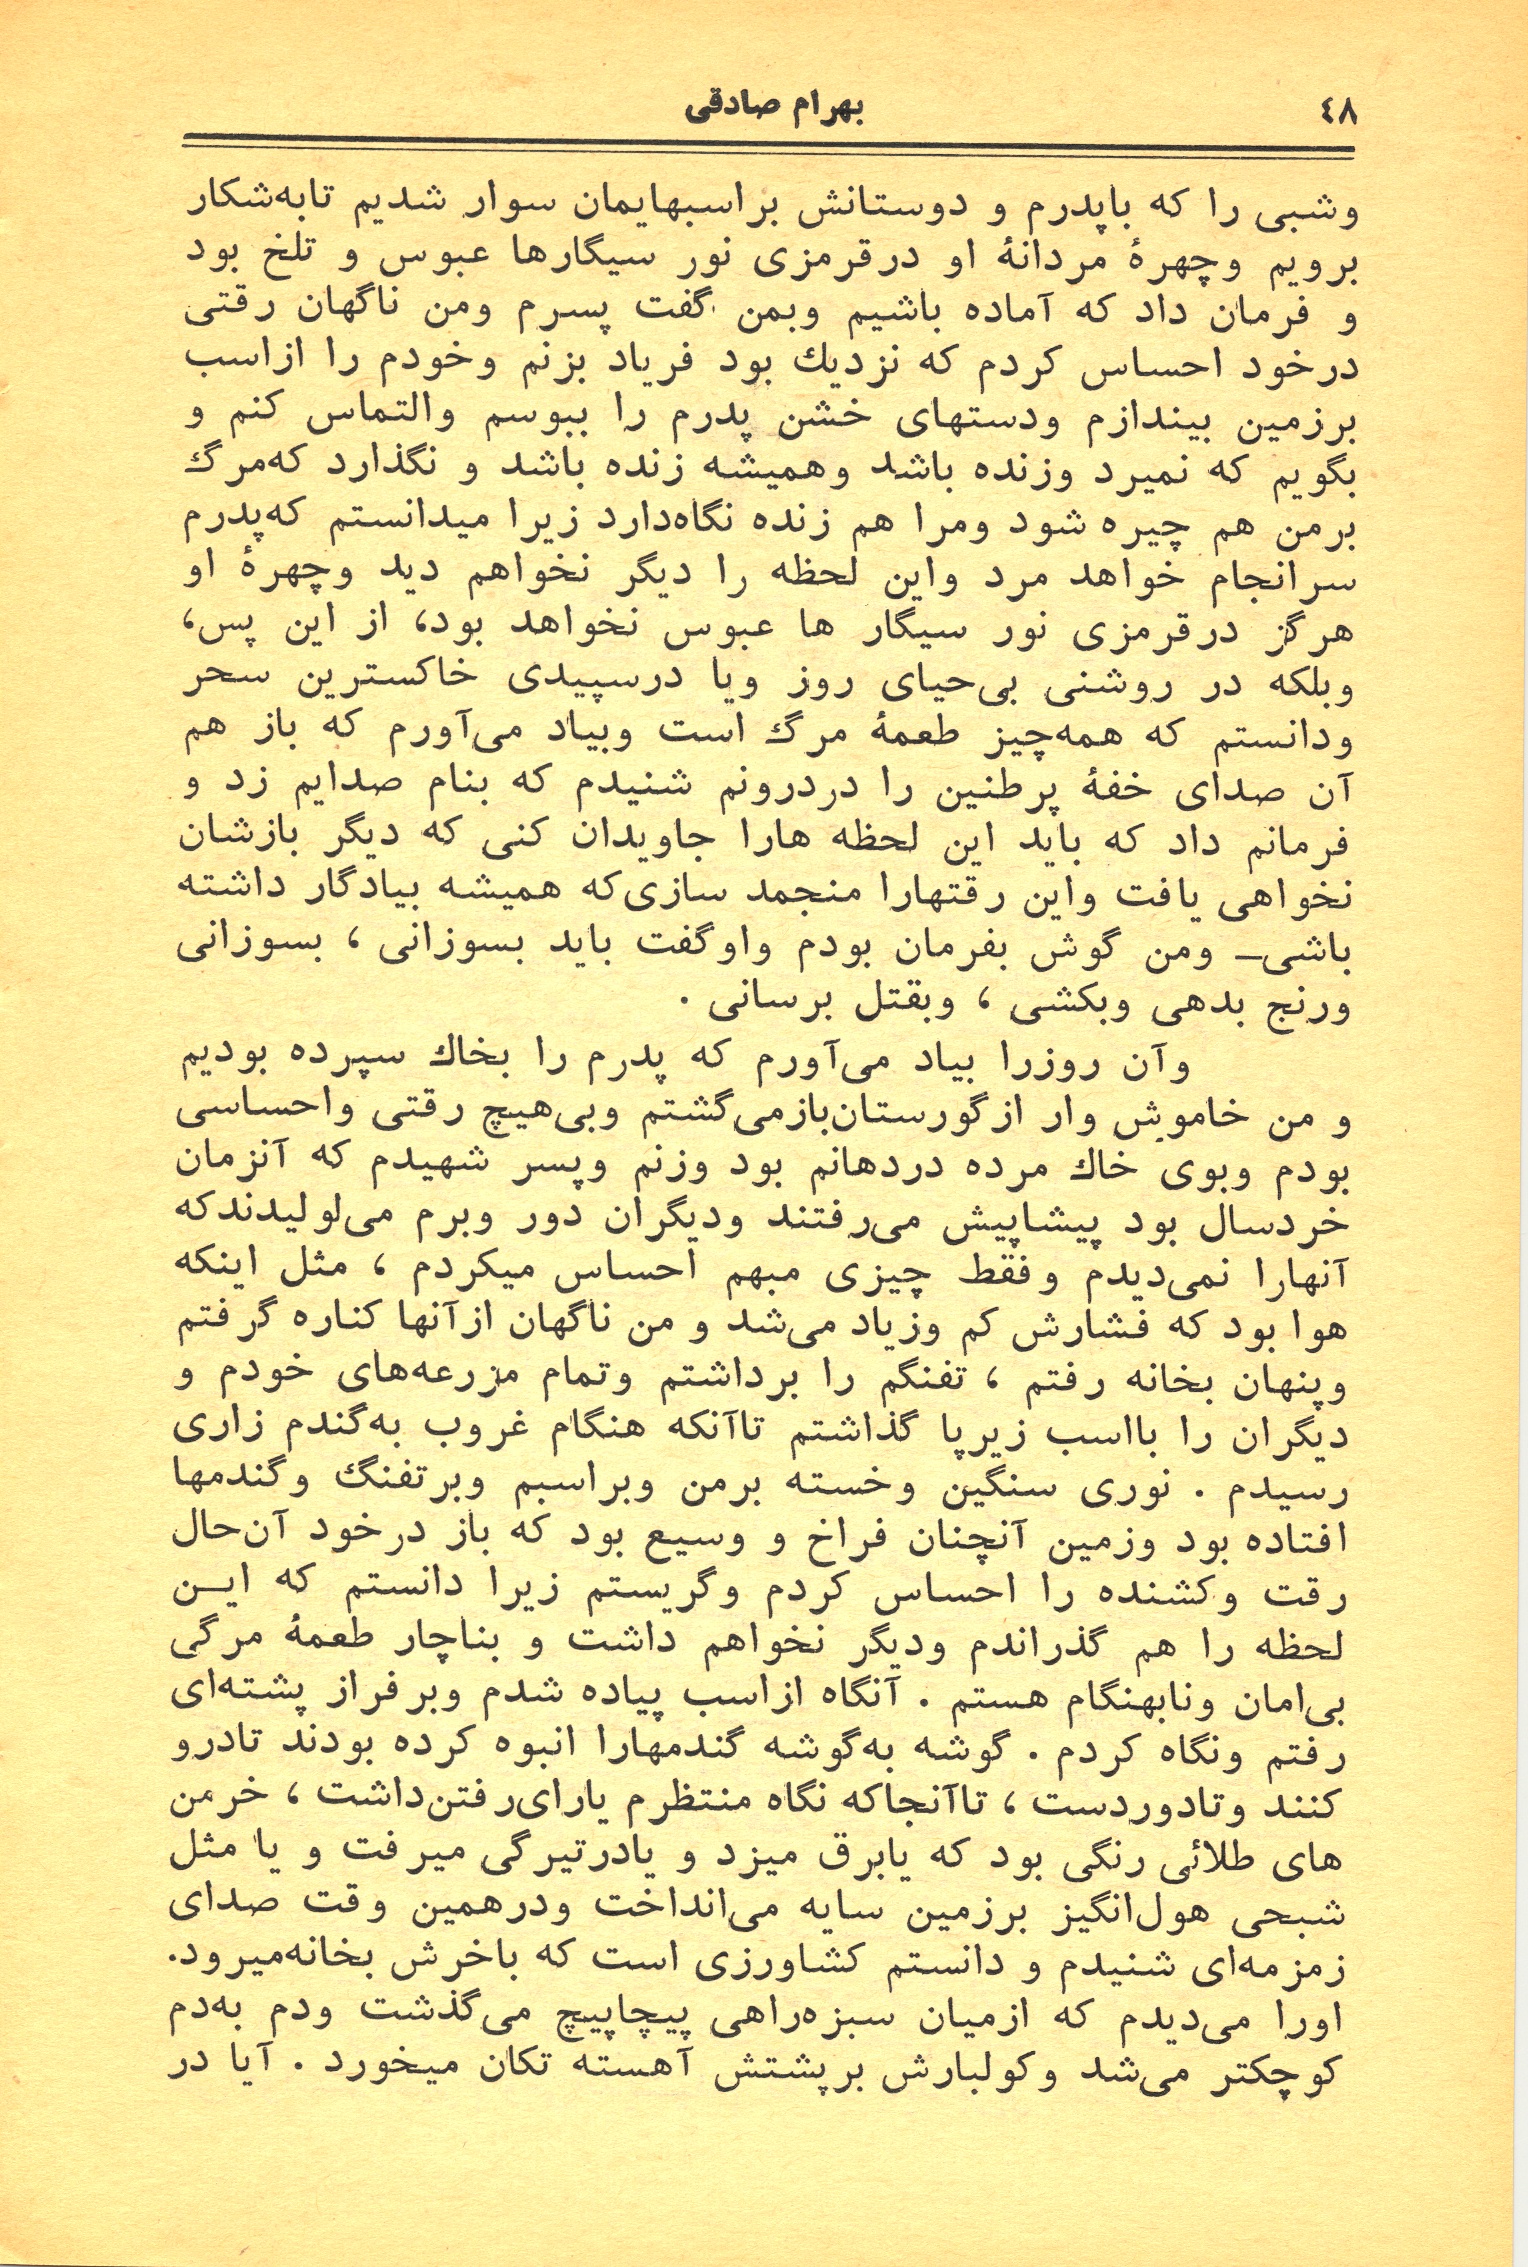 بهرام صادقی ٤٨
وشبی را که باپدرم و دوستانش براسبهایمان سوار شدیم تابه‌شکار
برویم وچهرهٔ مردانهٔ او درقرمزی نور سیگارها عبوس و تلخ بود
و فرمان داد که آماده باشیم وبمن گفت پسرم ومن ناگهان رقتی
درخود احساس کردم که نزدیك بود فریاد بزنم وخودم را ازاسب
برزمین بیندازم ودستهای خشن پدرم را ببوسم والتماس کنم و
بگویم که نمیرد وزنده باشد وهمیشه زنده باشد و نگذارد که‌مرگ
برمن هم چیره شود ومرا هم زنده نگاه‌دارد زیرا میدانستم که‌پدرم
سرانجام خواهد مرد واین لحظه را دیگر نخواهم دید وچهرهٔ او
هرگز درقرمزی نور سیگار ها عبوس نخواهد بود، از این پس،
وبلکه در روشنی بی‌حیای روز ویا درسپیدی خاکسترین سحر
ودانستم که همه‌چیز طعمهٔ مرگ است وبیاد می‌آورم که باز هم
آن صدای خفهٔ پرطنین را دردرونم شنیدم که بنام صدایم زد و
فرمانم داد که باید این لحظه هارا جاویدان کنی که دیگر بازشان
نخواهی یافت واین رقتهارا منجمد سازی‌که همیشه بیادگار داشته
باشی_ ومن گوش بفرمان بودم واوگفت باید بسوزانی ، بسوزانی
ورنج بدهی وبکشی ، وبقتل برسانی .
وآن روزرا بیاد می‌آورم که پدرم را بخاك سپرده بودیم
و من خاموش وار ازگورستان‌بازمی‌گشتم وبی‌هیچ رقتی واحساسی
بودم وبوی خاك مرده دردهانم بود وزنم وپسر شهیدم که آنزمان
خردسال بود پیشاپیش می‌رفتند ودیگران دور وبرم می‌لولیدندکه
آنهارا نمی‌دیدم وفقط چیزی مبهم احساس میکردم ، مثل اینکه
هوا بود که فشارش کم وزیاد می‌شد و من ناگهان ازآنها کناره گرفتم
وپنهان بخانه رفتم ، تفنگم را برداشتم وتمام مزرعه‌های خودم و
دیگران را بااسب زیرپا گذاشتم تاآنکه هنگام غروب به‌گندم زاری
رسیدم . نوری سنگین وخسته برمن وبراسبم وبرتفنگ وگندمها
افتاده بود وزمین آنچنان فراخ و وسیع بود که باز درخود آن‌حال
رقت وکشنده را احساس کردم وگریستم زیرا دانستم که ایـن
لحظه را هم گذراندم ودیگر نخواهم داشت و بناچار طعمهٔ مرگی
بی‌امان ونابهنگام هستم . آنگاه ازاسب پیاده شدم وبرفراز پشته‌ای
رفتم ونگاه کردم . گوشه به‌گوشه گندمهارا انبوه کرده بودند تادرو
کنند وتادوردست ، تاآنجاکه نگاه منتظرم یارای‌رفتن‌داشت ، خرمن
های طلائی رنگی بود که یابرق میزد و یادرتیرگی میرفت و یا مثل
شبحی هول‌انگیز برزمین سایه می‌انداخت ودرهمین وقت صدای
زمزمه‌ای شنیدم و دانستم کشاورزی است که باخرش بخانه‌میرود.
اورا می‌دیدم که ازمیان سبزه‌راهی پیچاپیچ می‌گذشت ودم به‌دم
کوچکتر می‌شد وکولبارش برپشتش آهسته تکان میخورد . آیا در